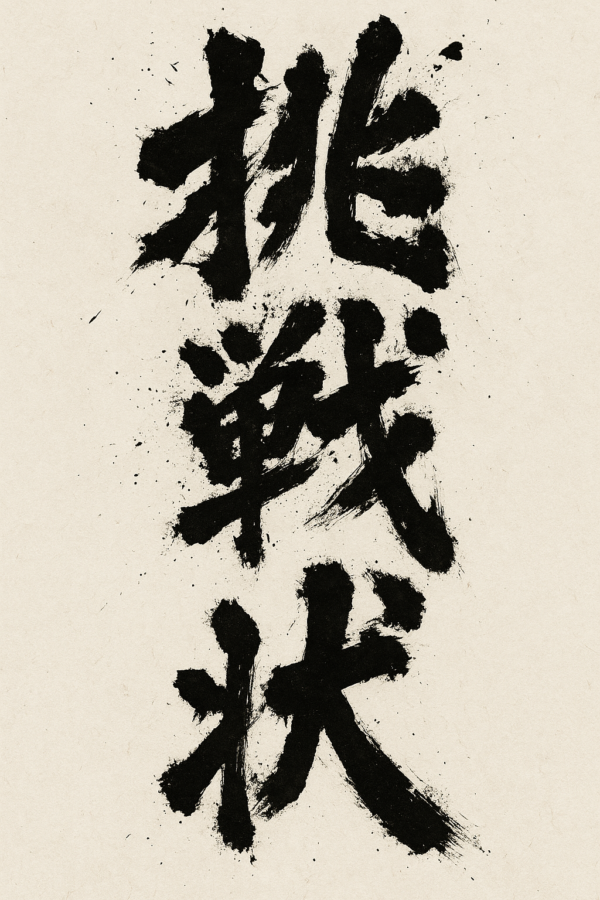 挑戦状